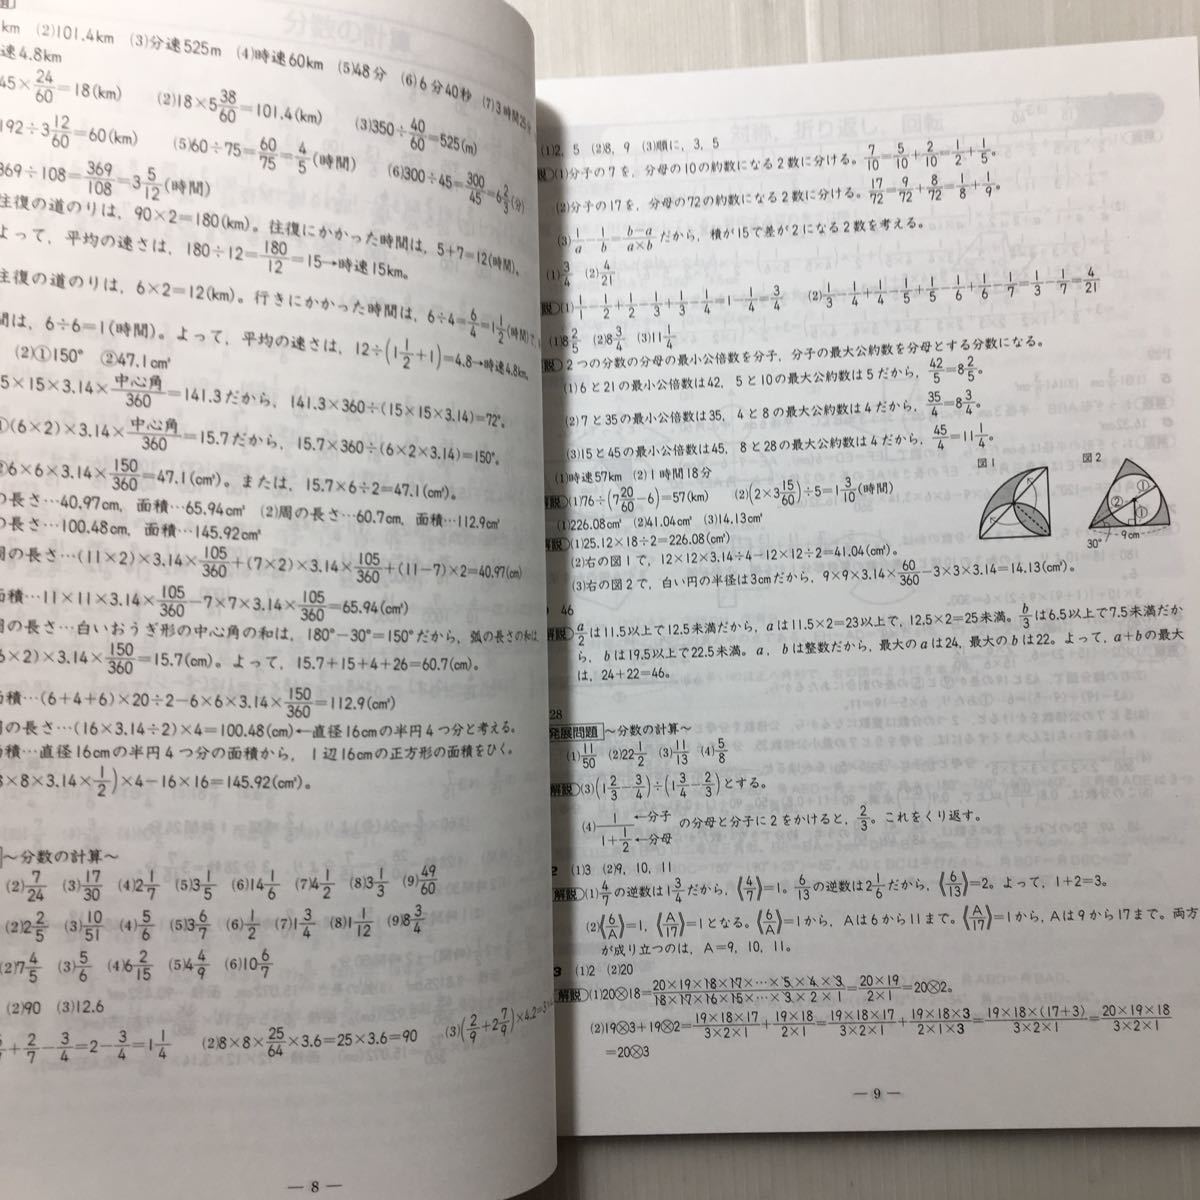 km (2)101.4km (3)分速525m (4)時速60km (5)48分 (6)6分40秒 (7)3時間25分
速4.8km
45×24/60=18(km) (2)18×5 38/60=101.4(km) (3)350÷40/60=525(m)
192÷3 12/60=60(km) (5)60÷75=60/75=4/5(時間) (6)300÷45=300/45=6 2/3(分)
369÷108=369/108=3 5/12(時間)
往復の道のりは，90×2=180(km)。往復にかかった時間は，5+7=12(時間)。
よって，平均の速さは，180÷12=180/12=15→時速15km。
往復の道のりは，6×2=12(km)。行きにかかった時間は，6÷4=6/4=1 1/2(時間)
間は，6÷6=1(時間)。よって，平均の速さは，12÷(1 1/2+1)=4.8→時速4.8km。
(2)①150° ②47.1cm²
5×15×3.14×中心角/360=141.3だから，141.3×360÷(15×15×3.14)=72°。
①(6×2)×3.14×中心角/360=15.7だから，15.7×360÷(6×2×3.14)=150°。
②6×6×3.14×150/360=47.1(cm²)。または，15.7×6÷2=47.1(cm²)。
の長さ…40.97cm，面積…65.94cm² (2)周の長さ…60.7cm，面積…112.9cm²
の長さ…100.48cm，面積…145.92cm²
周の長さ…(11×2)×3.14×105/360+(7×2)×3.14×105/360+(11-7)×2=40.97(cm)
面積…11×11×3.14×105/360-7×7×3.14×105/360=65.94(cm²)
周の長さ…白いおうぎ形の中心角の和は，180°-30°=150°だから，弧の長さの和は
6×2)×3.14×150/360=15.7(cm)。よって，15.7+15+4+26=60.7(cm)。
面積…(6+4+6)×20÷2-6×6×3.14×150/360=112.9(cm²)
周の長さ…(16×3.14÷2)×4=100.48(cm)←直径16cmの半円4つ分と考える。
面積…直径16cmの半円4つ分の面積から，1辺16cmの正方形の面積をひく。
8×8×3.14×1/2)×4-16×16=145.92(cm²)。
～分数の計算～
(2)7/24 (3)17/30 (4)2 1/7 (5)3 1/5 (6)14 1/6 (7)4 1/2 (8)3 1/3 (9)49/60
(2)2 2/5 (3)10/51 (4)5/6 (5)3 6/7 (6)1/2 (7)1 3/4 (8)1 1/12 (9)8 3/4
(2)7 4/5 (3)5/6 (4)6 2/15 (5)4 4/9 (6)10 6/7
(2)90 (3)12.6
+2/7-3/4=2-3/4=1 1/4 (2)8×8×25/64×3.6=25×3.6=90 (3)(2/9+2 7/9)×4.2=3
― 8 ―
(1)2，5 (2)8，9 (3)順に，3，5
説 (1)分子の7を，分母の10の約数になる2数に分ける。7/10=5/10+2/10=1/2+1/5。
(2)分子の17を，分母の72の約数になる2数に分ける。17/72=9/72+8/72=1/8+1/9。
(3)1/a-1/b=b-a/a×bだから，積が15で差が2になる2数を考える。
(1)3/4 (2)4/21
説 (1)1/1-1/2+1/2-1/3+1/3-1/4=1-1/4=3/4 (2)1/3-1/4+1/4-1/5+1/5-1/6+1/6-1/7=1/3-1/7=4/21
(1)8 2/5 (2)8 3/4 (3)11 1/4
説 2つの分数の分母の最小公倍数を分子，分子の最大公約数を分母とする分数になる。
(1)6と21の最小公倍数は42，5と10の最大公約数は5だから，42/5=8 2/5。
(2)7と35の最小公倍数は35，4と8の最大公約数は4だから，35/4=8 3/4。
(3)15と45の最小公倍数は45，8と28の最大公約数は4だから，45/4=11 1/4。
(1)時速57km (2)1時間18分
解説 (1)76÷(7 20/60-6)=57(km) (2)(2×3 15/60)÷5=1 3/10(時間)
(1)226.08cm² (2)41.04cm² (3)14.13cm²
解説 (1)25.12×18÷2=226.08(cm²)
(2)右の図1で，12×12×3.14÷4-12×12÷2=41.04(cm²)。
(3)右の図2で，白い円の半径は3cmだから，9×9×3.14×60/360-3×3×3.14=14.13(cm²)。
図1
図2
①
②
①
30°
9cm
46
解説 a/2は11.5以上で12.5未満だから，aは11.5×2=23以上で，12.5×2=25未満。b/3は6.5以上で7.5未満だか
ら，bは19.5以上で22.5未満。a，bは整数だから，最大のaは24，最大のbは22。よって，a+bの最大
は，24+22=46。
28
発展問題 ～分数の計算～
(1)11/50 (2)22 1/2 (3)11/13 (4)5/8
解説 (3)(1 2/3-3/4)÷(1 3/4-2/3)とする。
(4)1/1+1/2 ←分子 ←分母 の分母と分子に2をかけると，2/3。これをくり返す。
2 (1)3 (2)9，10，11
解説 (1)4/7の逆数は1 3/4だから，《4/7》=1。6/13の逆数は2 1/6だから，《6/13》=2。よって，1+2=3。
(2)《6/A》=1，《A/17》=1となる。《6/A》=1から，Aは6から11まで。《A/17》=1から，Aは9から17まで。両方
が成り立つのは，A=9，10，11。
3 (1)2 (2)20
解説 (1)20⊗18=20×19×18×17×…×5×4×3/18×17×16×15×…×3×2×1=20×19/2×1=20⊗2。
(2)19⊗3+19⊗2=19×18×17/3×2×1+19×18/2×1=19×18×17/3×2×1+19×18×3/2×1×3=19×18×(17+3)/3×2×1=20×19×18/3×2×1
=20⊗3
― 9 ―